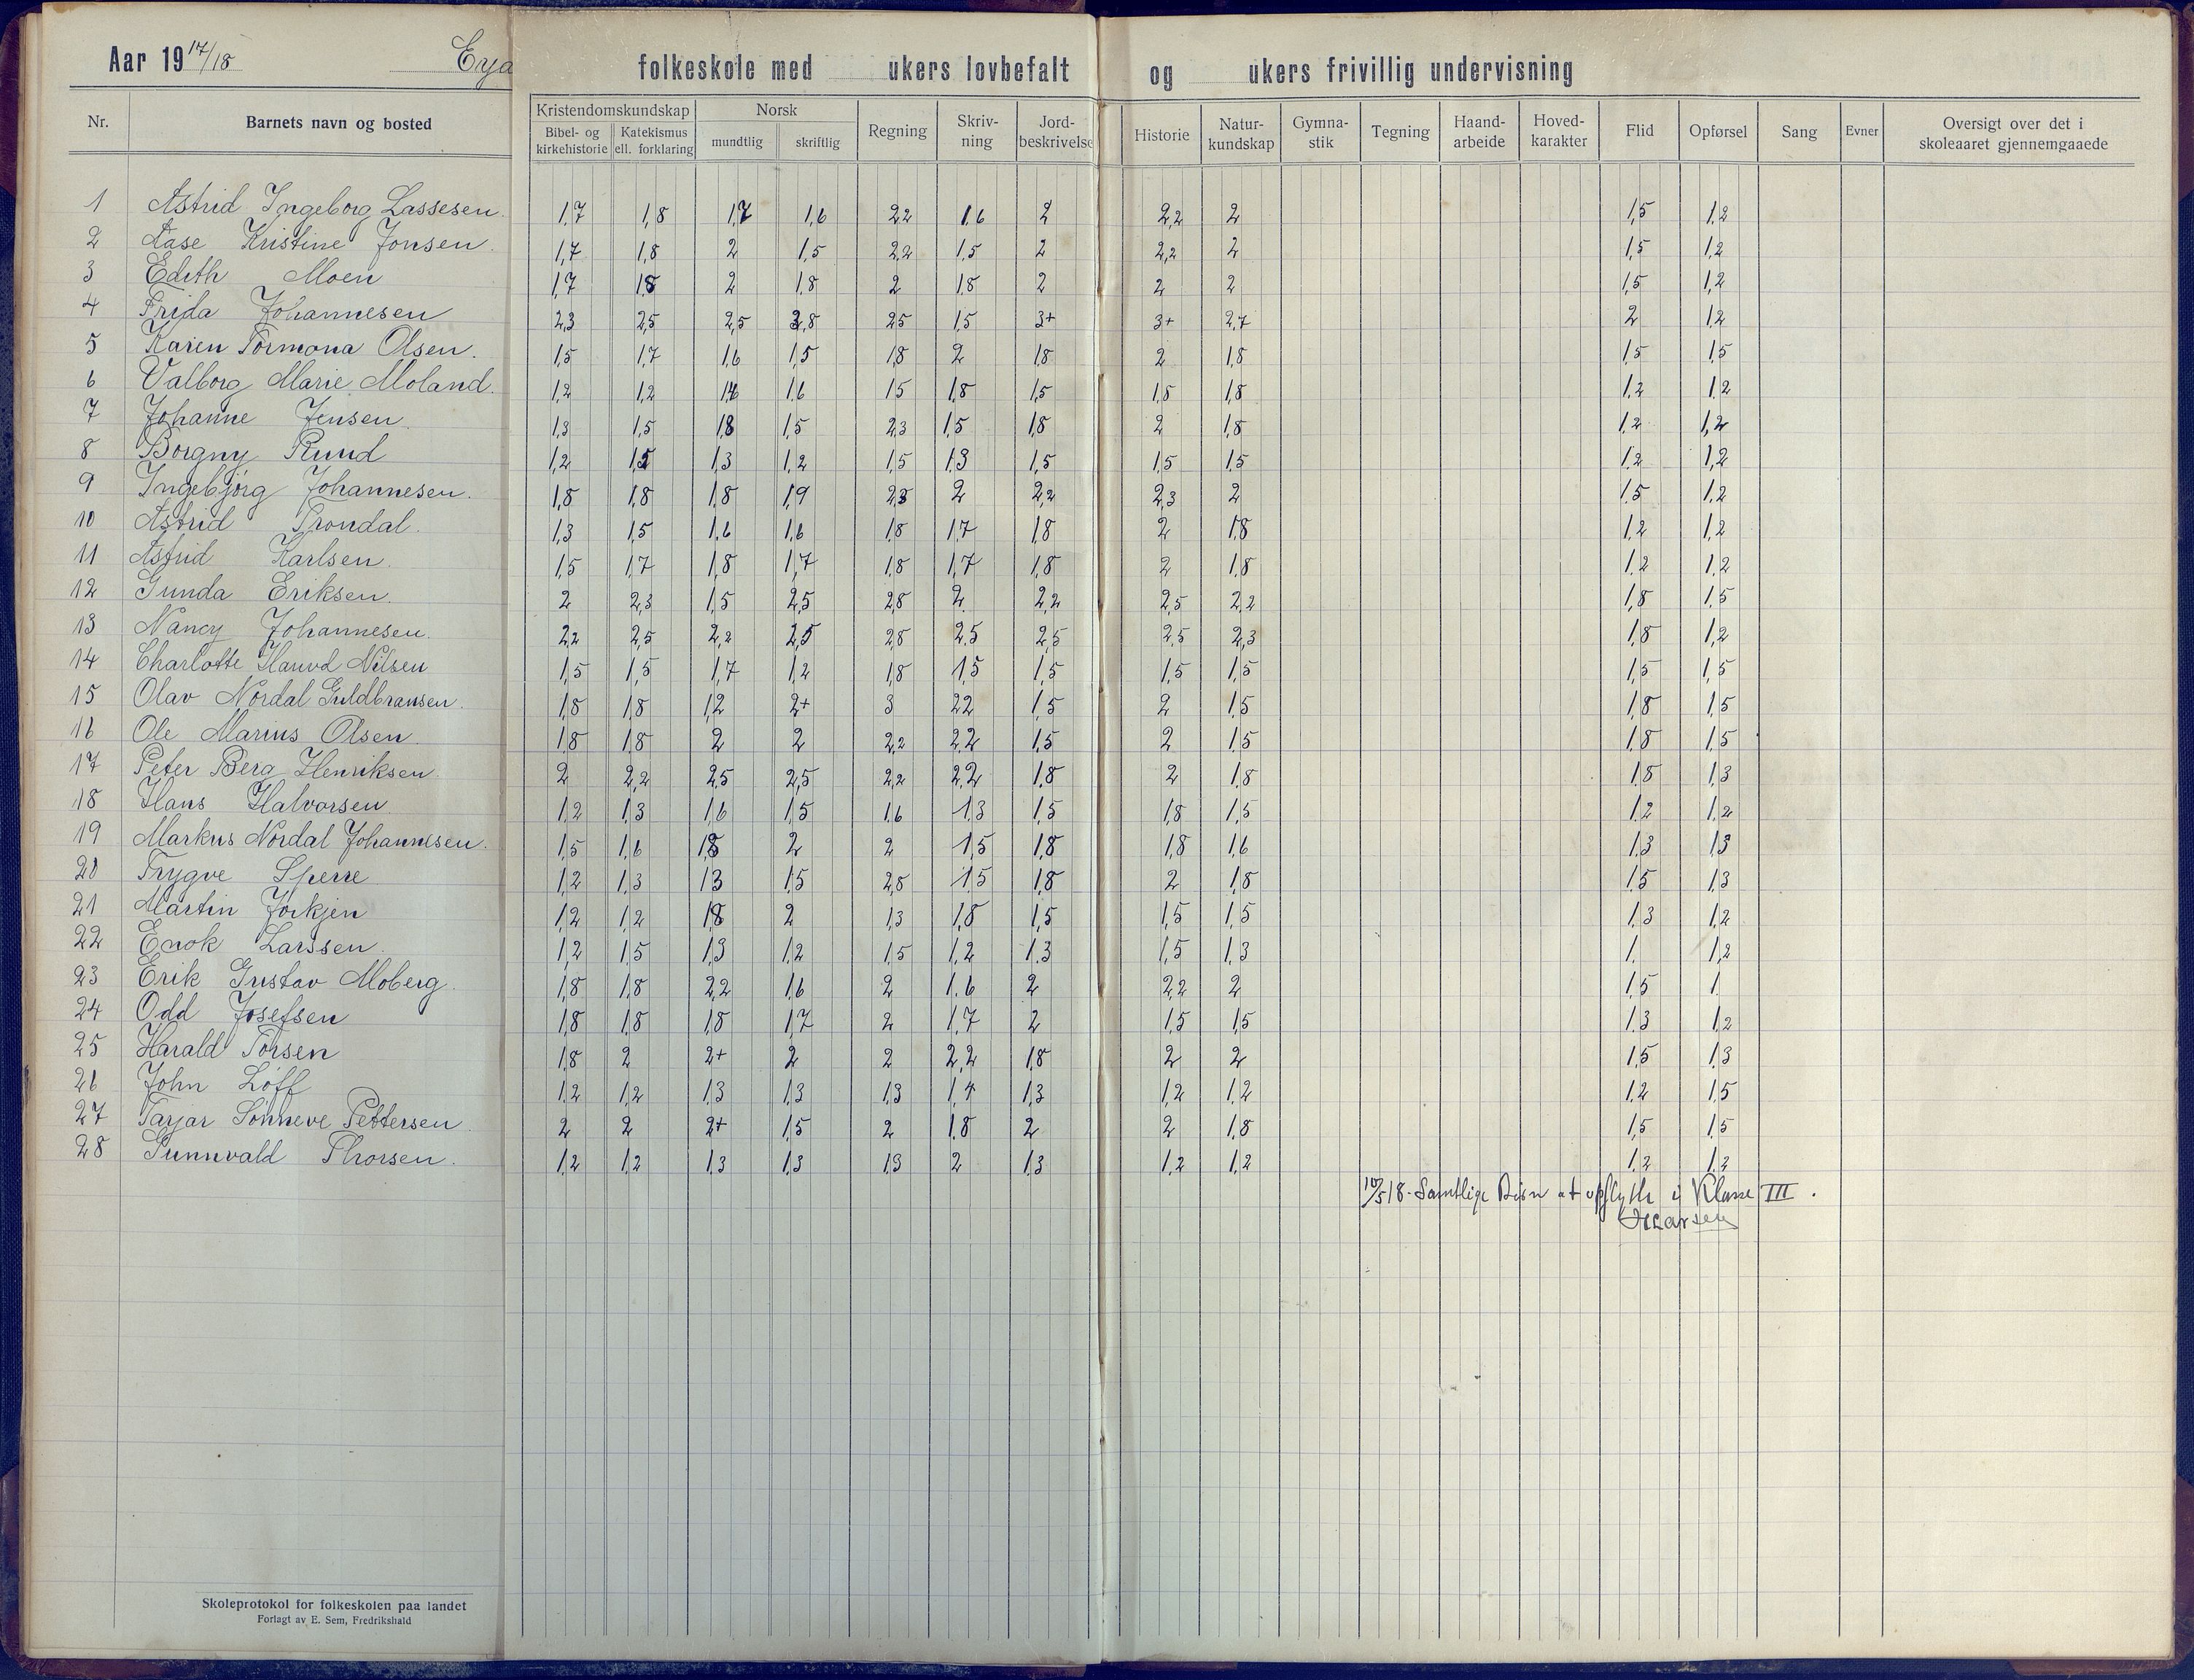 Aar 1917/18 Eyd folkeskole med ukers lovbefalt og ukers frivillig undervisning
Nr. Barnets navn og bosted Kristendomskundskap Bibel- og kirkehistorie Katekismus ell. forklaring Norsk mundtlig skriftlig Regning Skriv-ning Jord-beskrivelse Historie Natur-kundskap Gymna-stik Tegning Haand-arbeide Hoved-karakter Flid Opførsel Sang Evner Oversigt over det i skoleaaret gjennemgaaede
1 Astrid Ingeborg Lassesen. 1,7 1,8 1,7 1,6 2,2 1,6 2 2,2 2 1,5 1,2
2 Aase Kristine Jonsen. 1,7 1,8 2 1,5 2,2 1,5 2 2,2 2 1,5 1,2
3 Edith Moen 1,7 1,8 2 1,8 2 1,8 2 2 2 1,5 1,2
4 Frida Johannesen 2,3 2,5 2,5 2,8 2,5 1,5 3+ 3+ 2,7 2 1,2
5 Karen Tormona Olsen. 1,5 1,7 1,6 1,5 1,8 2 1,8 2 1,8 1,5 1,5
6 Valborg Marie Moland. 1,2 1,2 1,6 1,6 1,5 1,8 1,5 1,8 1,8 1,2 1,2
7 Johanne Jensen. 1,3 1,5 1,8 1,5 2,3 1,5 1,8 2 1,8 1,2 1,2
8 Borgny Ruud 1,2 1,5 1,3 1,2 1,5 1,3 1,5 1,5 1,5 1,2 1,2
9 Ingebjørg Johannesen. 1,8 1,8 1,8 1,9 2,3 2 2,2 2,3 2 1,5 1,2
10 Astrid Trondal. 1,3 1,5 1,6 1,6 1,8 1,7 1,8 2 1,8 1,2 1,2
11 Astrid Karlsen. 1,5 1,7 1,8 1,7 1,8 1,7 1,8 2 1,8 1,2 1,2
12 Gunda Eriksen. 2 2,3 1,5 2,5 2,8 2 2,2 2,5 2,2 1,8 1,5
13 Nancy Johannesen. 2,2 2,5 2,2 2,5 2,8 2,5 2,5 2,5 2,3 1,8 1,2
14 Charlotte Nilsen 1,5 1,5 1,7 1,2 1,8 1,5 1,5 1,5 1,5 1,5 1,5
15 Olav Nordal Guldbransen. 1,8 1,8 1,2 2+ 3 2,2 1,5 2 1,5 1,8 1,5
16 Ole Marius Olsen. 1,8 1,8 2 2 2,2 2,2 1,5 2 1,5 1,8 1,5
17 Peter Berg Henriksen. 2 2,2 2,5 2,5 2,2 2,2 1,8 2 1,8 1,8 1,3
18 Hans Halvorsen 1,2 1,3 1,6 1,5 1,6 1,3 1,5 1,8 1,5 1,2 1,2
19 Markus Nordal Johannesen. 1,5 1,6 1,8 2 2 1,5 1,8 1,8 1,6 1,3 1,3
20 Trygve Sperre 1,2 1,3 1,3 1,5 2,8 1,5 1,8 2 1,8 1,5 1,3
21 Martin Jorkjen 1,2 1,2 1,8 2 1,3 1,8 1,5 1,5 1,5 1,3 1,2
22 Enok Larssen. 1,2 1,5 1,3 1,2 1,5 1,2 1.3 1,5 1,3 1. 1,2
23 Erik Gustav Moberg. 1,8 1,8 2,2 1,6 2 1.6 2 2,2 2 1,5 1.
24 Odd Josefsen 1,8 1,8 1,8 1,7 2 1,7 2 1,5 1,5 1,3 1,2
25 Harald Torsen 1,8 2 2+ 2 2 2,2 1,8 2 2 1,5 1,3
26 John Löff 1,2 1,2 1,3 1,3 1,3 1,4 1,3 1,2 1,2 1,2 1,5
27 Tarjar Sønneve Pettersen. 2 2 2+ 1,5 2 1,8 2 2 1,8 1,5 1,5
28 Gunnvald Thorsen. 1,2 1,2 1,3 1,3 1,3 2 1,3 1,2 1,2 1,2 1,2
10/5 18. Samtlige Børn at opflytte i Klasse III.
Larsen
Skoleprotokol for folkeskolen paa landet
Forlagt av E. Sem, Fredrikshald